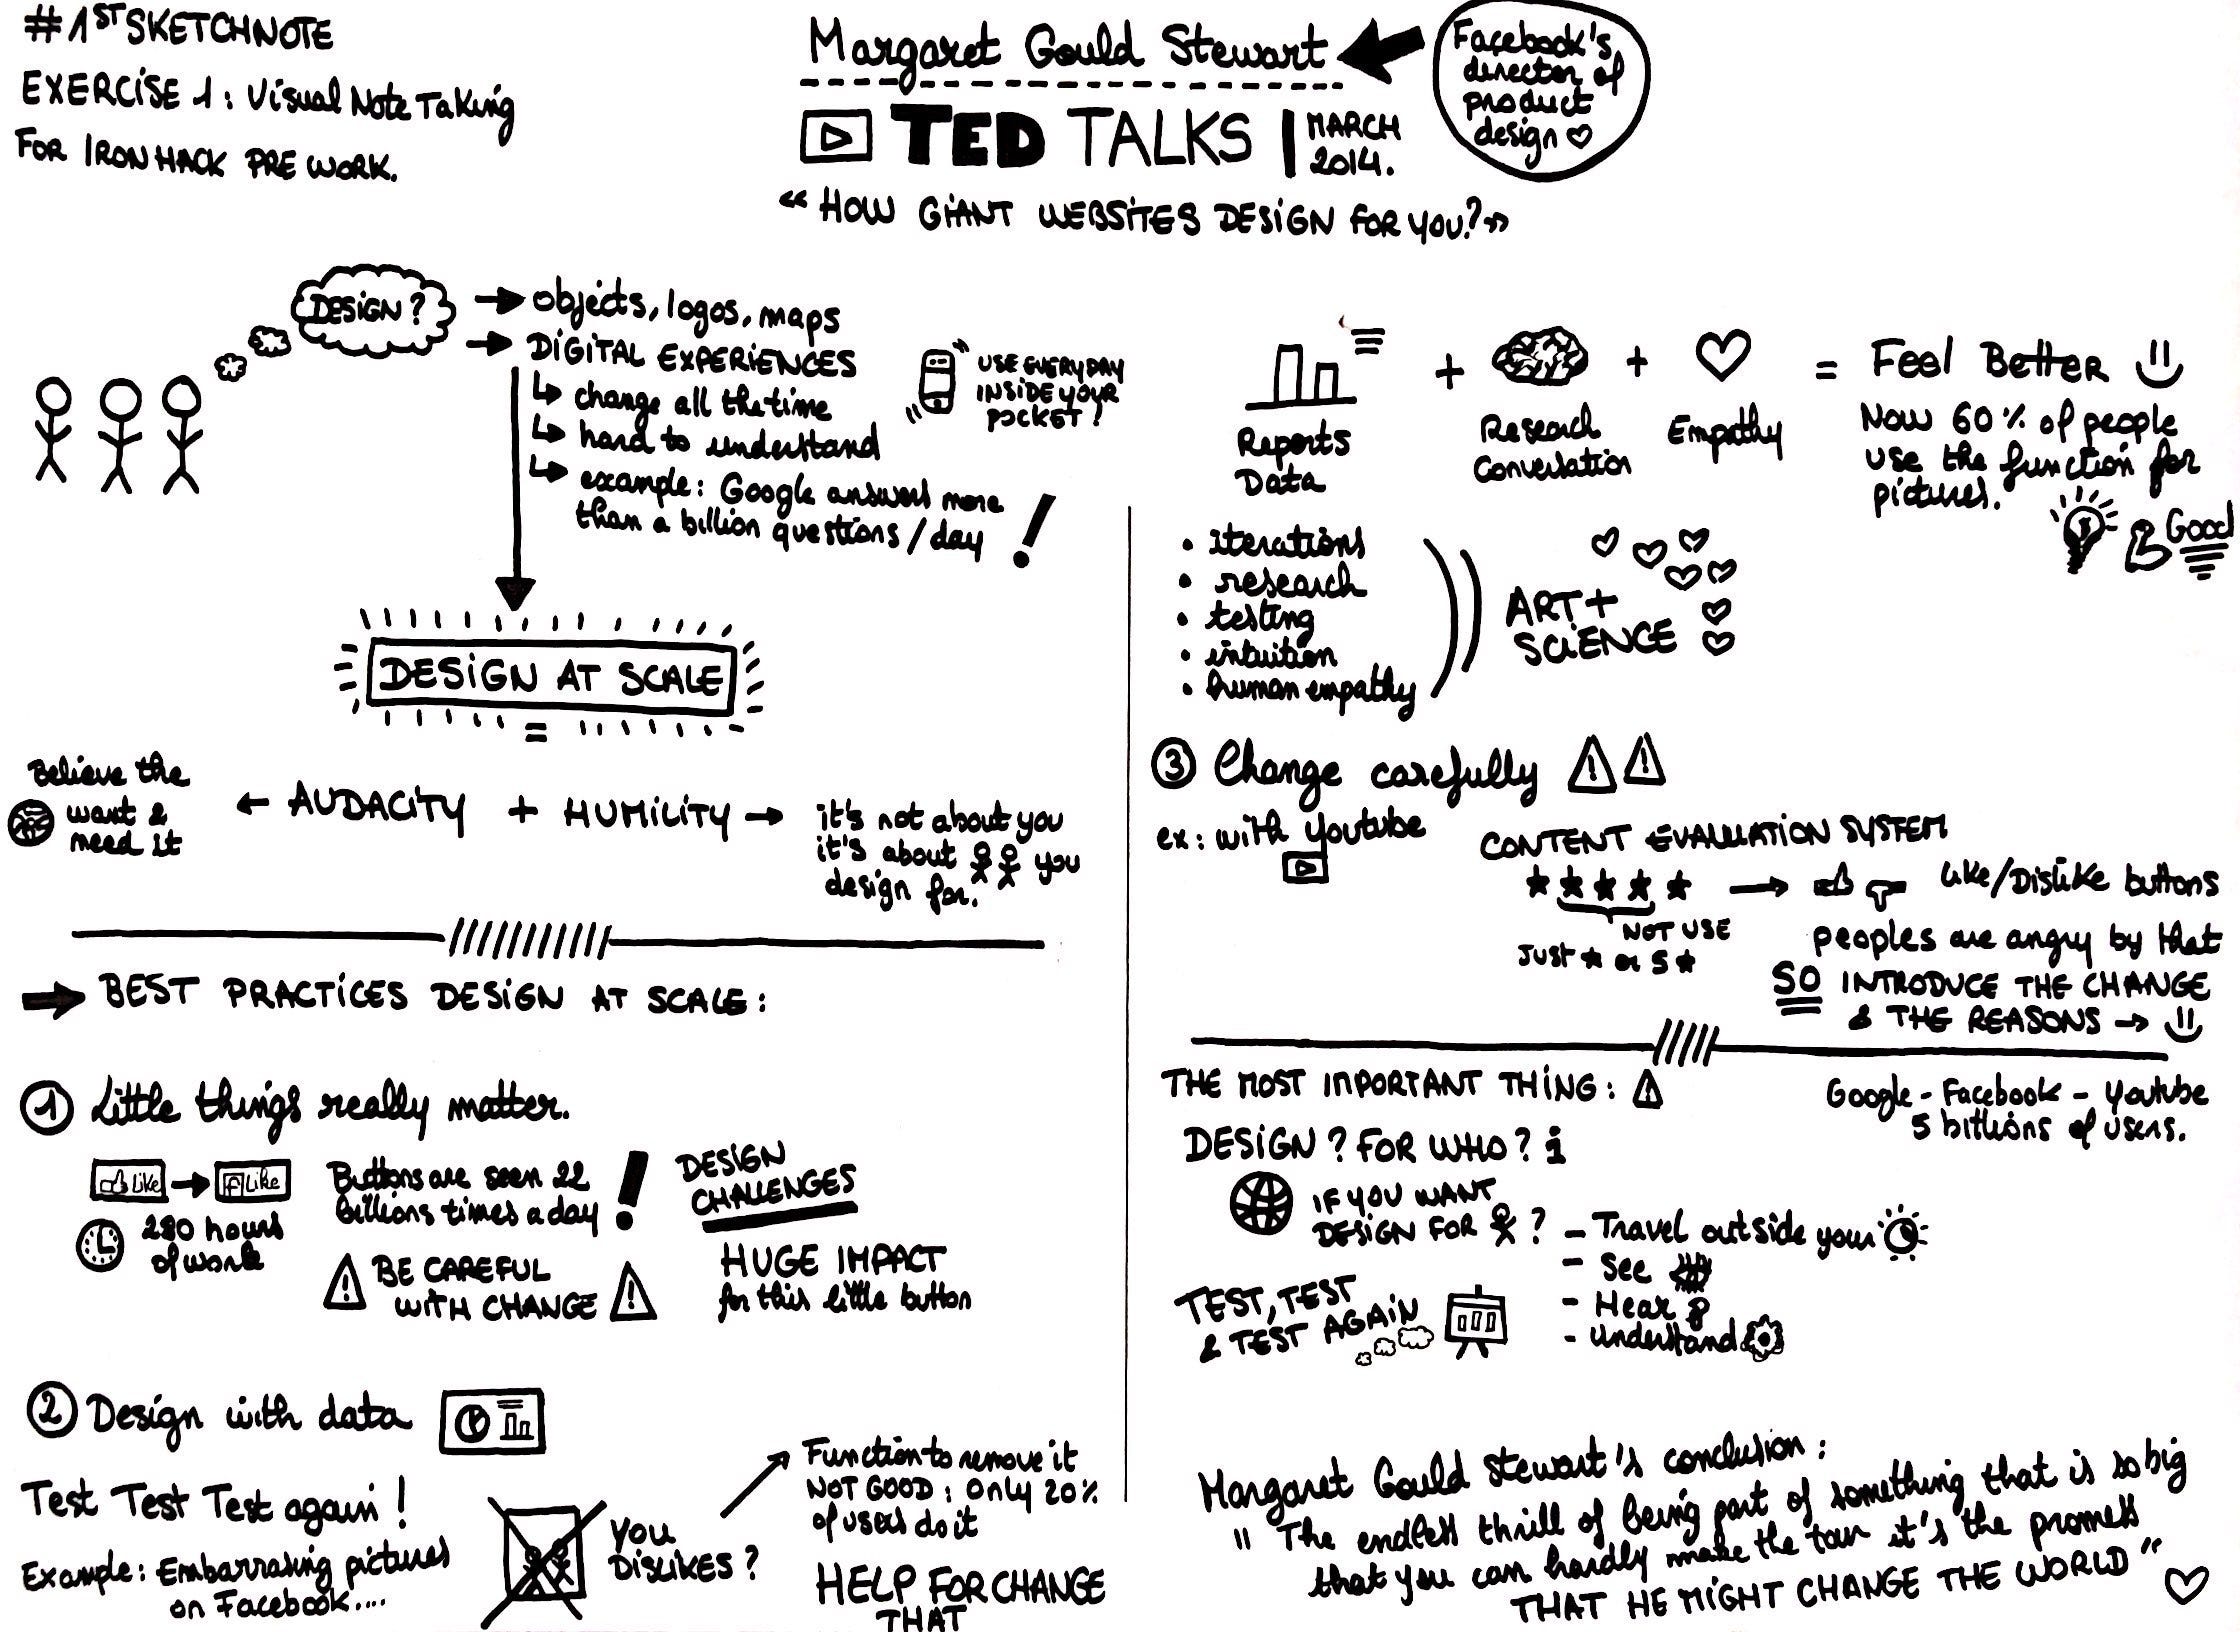 #1ST SKETCHNOTE
EXERCISE 1: Visual Note Taking
FOR IRONHACK PRE WORK.
Margaret Gould Stewart
Facebook's
director of
product
design
TED TALKS | MARCH
2014.
"HOW GIANT WEBSITES DESIGN FOR YOU?"
DESIGN?
objects, logos, maps
DIGITAL EXPERIENCES
change all the time
hard to understand
example: Google answers more
than a billion questions/day !
USE EVERYDAY
INSIDE YOUR
POCKET!
DESIGN AT SCALE
=
Believe the
want &
need it
AUDACITY + HUMILITY
it's not about you
it's about you
design for.
BEST PRACTICES DESIGN AT SCALE:
1 Little things really matter.
Like
f Like
280 hours
of work
Buttons are seen 22
billions times a day !
DESIGN
CHALLENGES
BE CAREFUL
WITH CHANGE
HUGE IMPACT
for this little button
2 Design with data
Test Test Test again!
Example: Embarrasing pictures
on Facebook....
YOU
DISLIKES?
Function to remove it
NOT GOOD: Only 20%
of users do it
HELP FOR CHANGE
THAT
Reports
Data
+
Research
Conversation
+
Empathy
= Feel Better
Now 60% of people
use the function for
pictures.
Good
• iterations
• research
• testing
• intuition
• human empathy
ART +
SCIENCE
3 Change carefully
ex: with Youtube
CONTENT EVALUATION SYSTEM
NOT USE
JUST ★ or 5 ★
Like/Dislike buttons
peoples are angry by that
SO INTRODUCE THE CHANGE
& THE REASONS
THE MOST IMPORTANT THING:
Google - Facebook - Youtube
5 billions of users.
DESIGN? FOR WHO?
IF YOU WANT
DESIGN FOR ?
- Travel outside your
- See
- Hear
- Understand
TEST, TEST
& TEST AGAIN
Margaret Gould Stewart's conclusion:
"The endless thrill of being part of something that is so big
that you can hardly make the tour it's the promess
THAT HE MIGHT CHANGE THE WORLD"